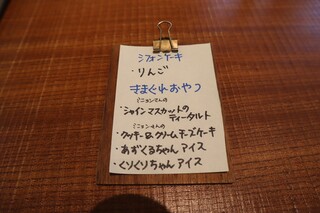 シフォンケーキ
・りんご
きまぐれおやつ
・シャインマスカットの
ティータルト
・クッキー&クリームチーズケーキ
・あずくるちゃんアイス
・くりくりちゃんアイス